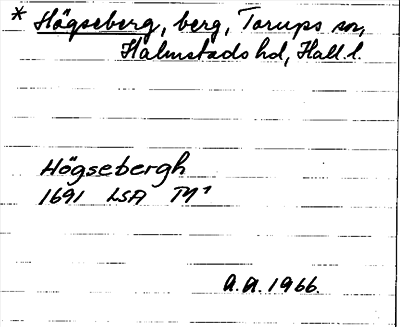 * Högseberg, berg, Torups sn,
Halmstads hd, Hall. l.
Högsebergh
1691 LSA
A.A. 1966.